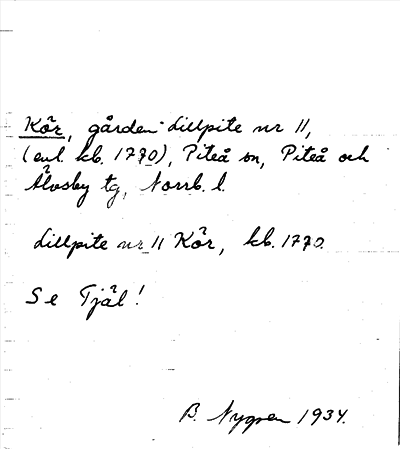 Kör, gården Lillpite nr 11,
(enl. kb. 1770), Piteå sn, Piteå och
Älvsby tg, Norrb. l.
Lillpite nr 11 Kör, kb. 1770.
Se Tjäl!
B. Nygren 1934.